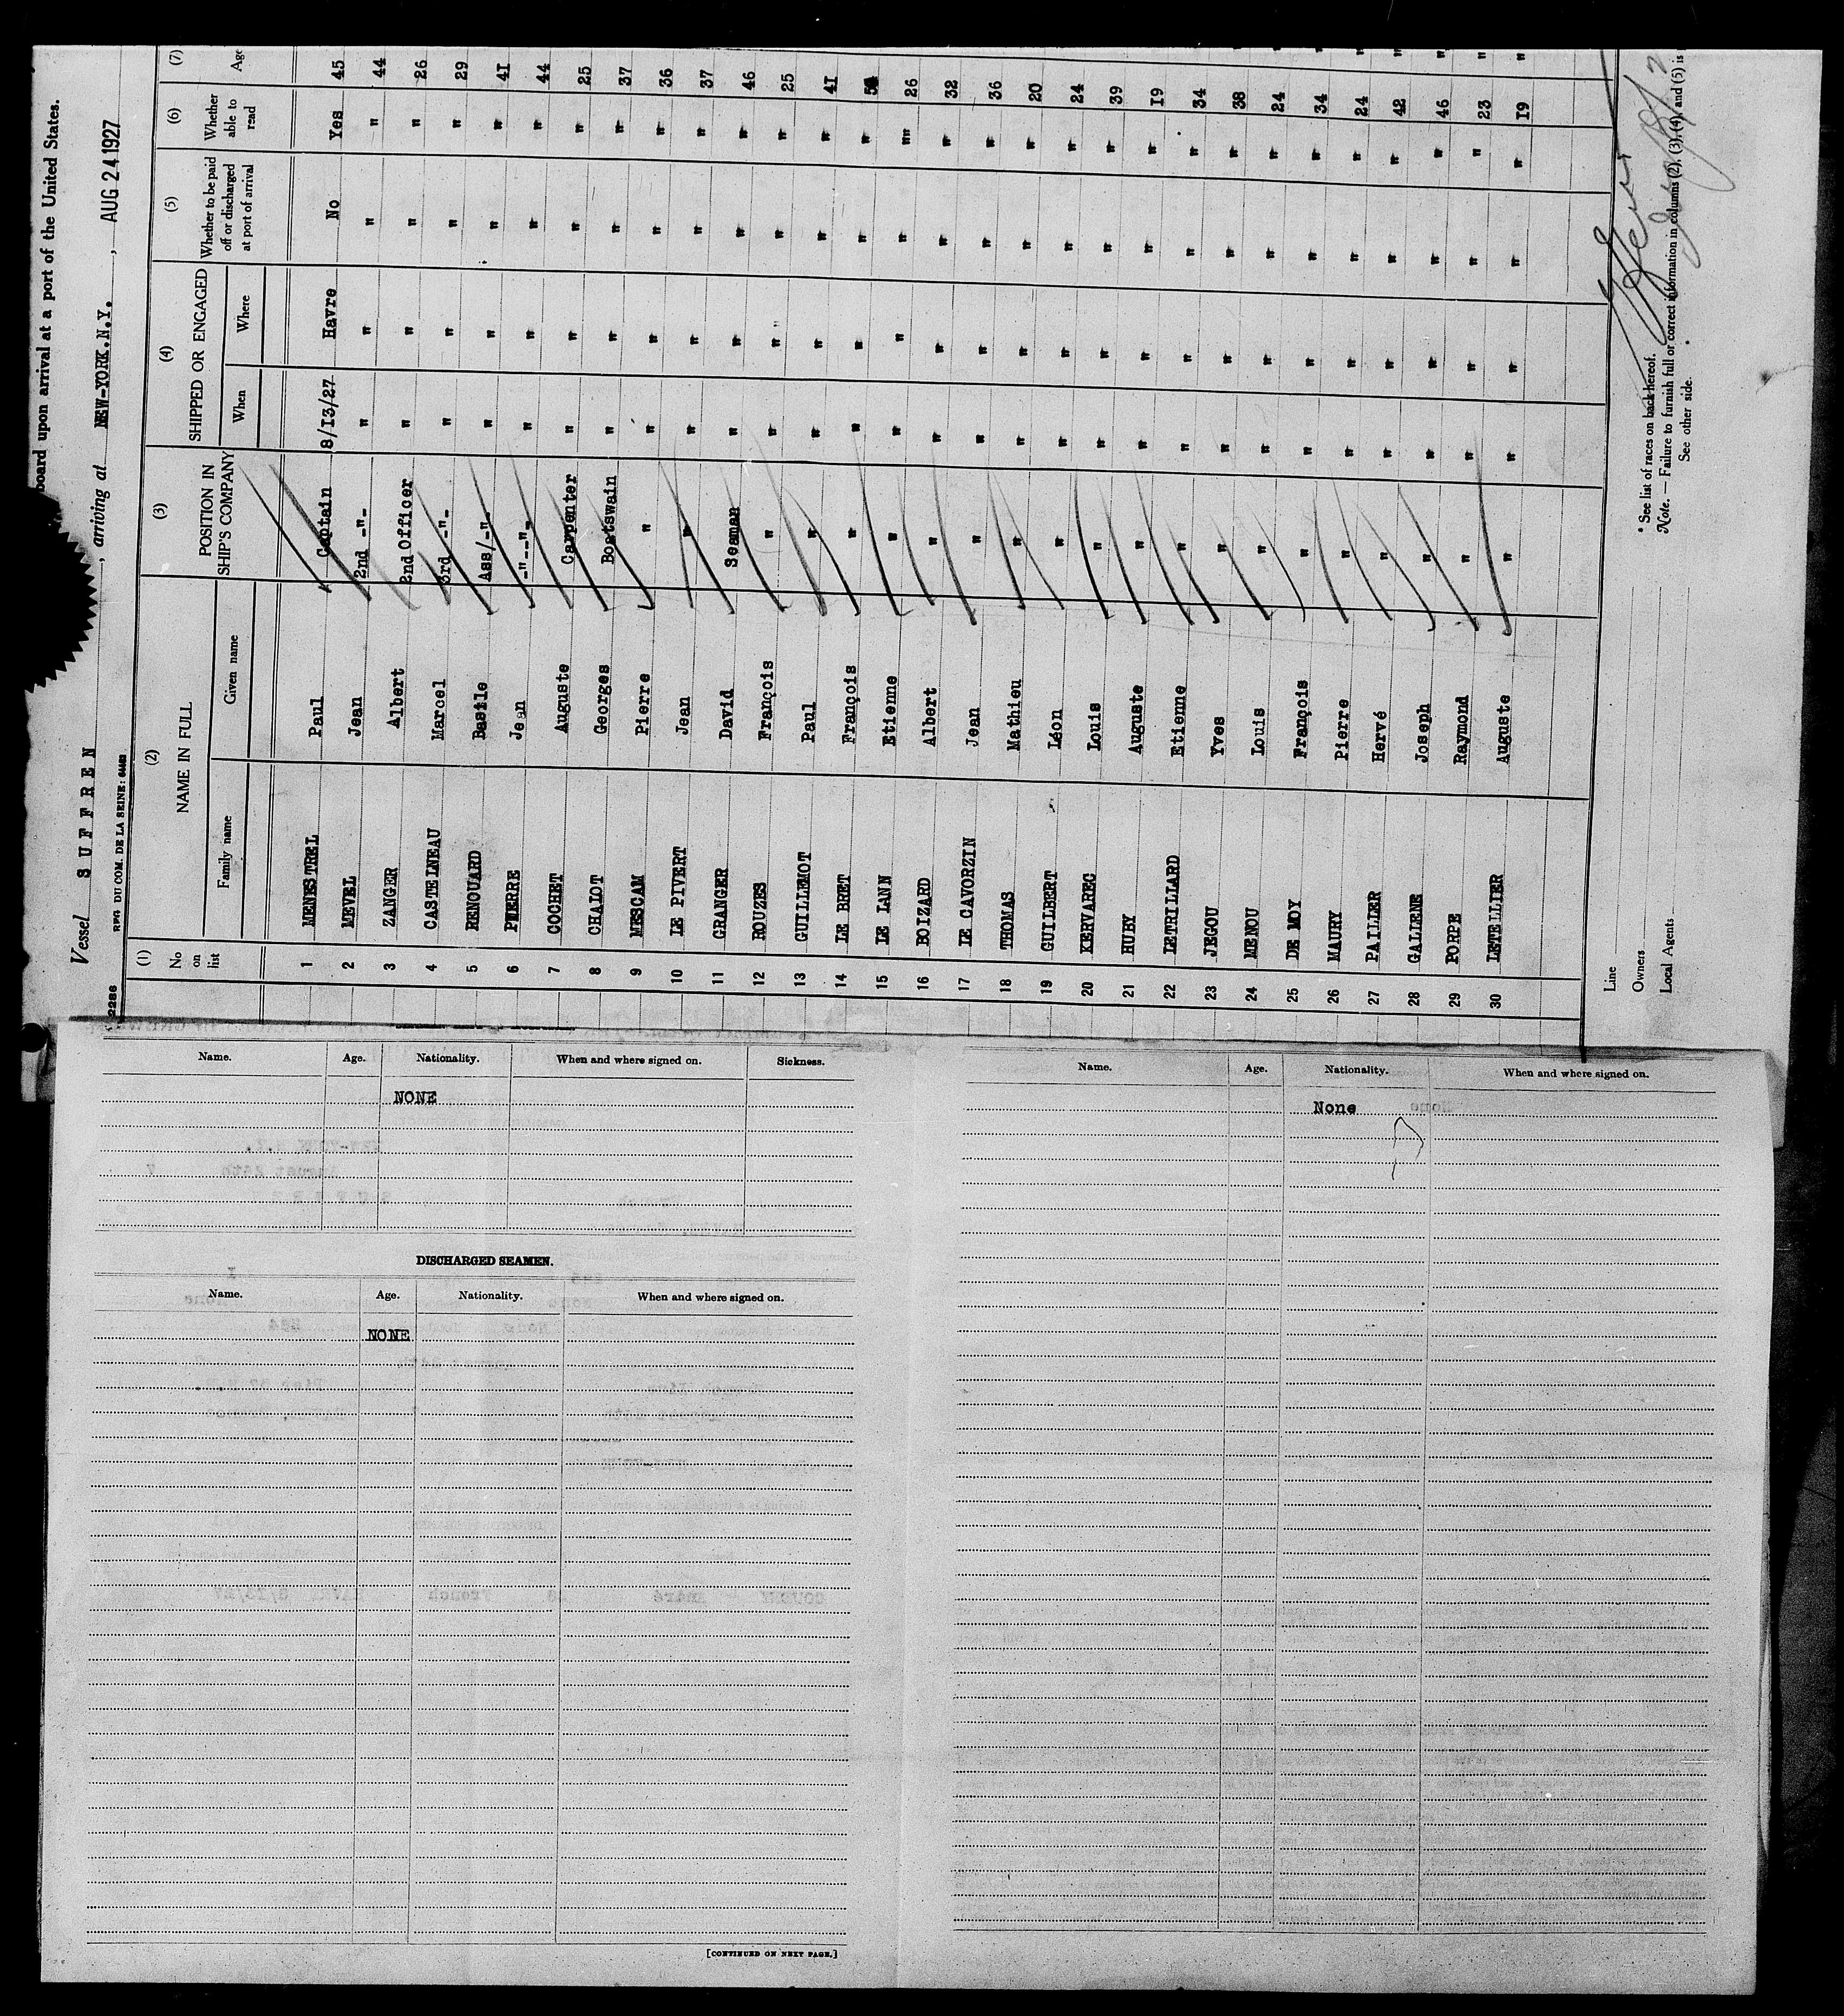 board upon arrival at a port of the United States.
Vessel SUFFREN, arriving at NEW-YORK.N.Y., AUG 24 1927
RFG DU COM. DE LA SEINE:
(1) (2) (3) (4) (5) (6) (7)
No on list NAME IN FULL POSITION IN SHIP'S COMPANY SHIPPED OR ENGAGED Whether to be paid off or discharged at port of arrival Whether able to read Age
Family name Given name When Where
1 MENESTREL Paul Captain 8/13/27 Havre No Yes 45
2 MEVEL Jean 2nd -"- " " " " 44
3 ZANGER Albert 2nd Officer " " " " 26
4 CASTELNEAU Marcel 3rd -"- " " " " 29
5 RENOUARD Basile Ass/-"- " " " " 41
6 PIERRE Jean -"--"- " " " " 44
7 COCHET Auguste Carpenter " " " " 25
8 CHALOT Georges Boatswain " " " " 37
9 MESCAM Pierre " " " " " 36
10 LE PIVERT Jean " " " " " 37
11 GRANGER David Seaman " " " " 46
12 ROUZES François " " " " " 25
13 GUILLEMOT Paul " " " " " 41
14 LE BRET François " " " " "
15 LE LANN Etienne " " " " "" 26
16 BOIZARD Albert " " " " " 32
17 LE CAVORZIN Jean " " " " " 36
18 THOMAS Mathieu " " " " " 20
19 GUILBERT Léon " " " " " 24
20 KERVAREC Louis " " " " " 39
21 HUBY Auguste " " " " " 19
22 LETRILLARD Etienne " " " " " 34
23 JEGOU Yves " " " " " 38
24 MENOU Louis " " " " " 24
25 DE MOY François " " " " " 34
26 MAURY Pierre " " " " " 24
27 PAILLER Hervé " " " " " 42
28 GALIENE Joseph " " " " " 46
29 PORPE Raymond " " " " " 23
30 LETELLIER Auguste " " " " " 19
Line
Owners
Local Agents
* See list of races on back hereof.
Note. — Failure to furnish full or correct information in columns (2), (3), (4), and (5) is
See other side.
Name. Age. Nationality. When and where signed on. Sickness.
NONE
DISCHARGED SEAMEN.
Name. Age. Nationality. When and where signed on.
NONE
[CONTINUED ON NEXT PAGE.]
Name. Age. Nationality. When and where signed on.
None